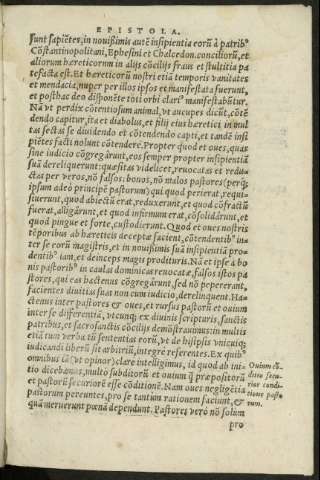 EPISTOLA.
sunt sapiētes, in nouissimis autē insipientia eorū à patribꝰ
Cōstantinopolitani, Ephesini et Chalcedon. conciliorū, et
aliorum hæreticorum in alijs cōcilijs fraus et stultitia pa
tefacta est. Et hæreticorū nostri etiā temporis vanitates
et mendacia, nuper per illos ipsos et manifestata fuerunt,
et posthac deo disponēte toti orbi clariꝰ manifestabūtur.
Nā vt perdix cōtentiosum animal, vt aucupes dicūt, cōtē
dendo capitur, ita et diabolus, et filij eius hæretici in mul
tas sectas se diuidendo et cōtendendo capti, et tandē insi
piētes facti nolunt cōtendere. Propter quod et oues, quas
sine iudicio cōgregârunt, eos semper propter insipientiā
suā dereliquerunt: quæsitas videlicet, reuocatas et redu-
ctas per veros, nō falsos: bonos, nō malos pastores (perq;
ipsum adeò principē pastorum) qui quod perierat, requi-
siuerunt, quod abiectū erat, reduxerunt, et quod cōfractū
fuerat, alligârunt, et quod infirmum erat, cōsolidârunt, et
quod pingue et forte, custodierant. Quod et oues nostris
tēporibus ab hæreticis deceptæ faciēt, cōtendentibꝰ in-
ter se eorū magistris, et in nouissimis suā insipientiā pro-
dentibꝰ iam, et deinceps magis prodituris. Nā et ipsæ à bo
nis pastoribꝰ in caulas dominicas reuocatæ, falsos istos pa
stores, qui eas hactenus cōgregârunt, sed nō pepererant,
facientes diuitias suas non cum iudicio, derelinquent. Ha-
ctenus inter pastores et oues, et rursus pastorū et ouium
inter se differentiā, vtcunq; ex diuinis scripturis, sanctis
patribus, et sacrosanctis cōcilijs demōstrauimus: in multis
etiā tum verba tū sententias eorū, vt de hisipsis vnicuiq;
iudicandi liberū sit arbitriū, integrè referentes. Ex quibꝰ
omnibus iā (vt opinor) clarè intelligimus, id quod ab ini-
tio dicebamus, multò subditorū et ouium q̄ præpositorū
et pastorū securiorē esse cōditionē. Nam oues negligētia
pastorum pereuntes, pro se tantùm rationem faciunt, et
quā meruerunt pœnā dependunt. Pastores verò nō solum
Ouium cō-
ditio secu-
rior condi-
tione pasto
rum.
pro